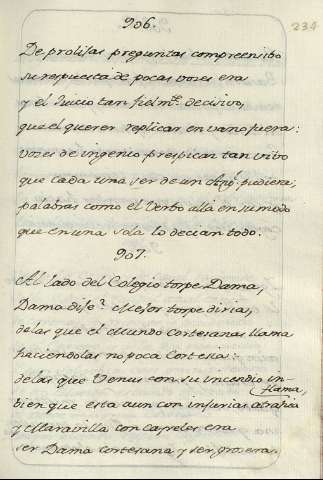 906.
234
De prolijas preguntas compreensibo
su respuesta de pocas vozes era
y el Juicio tan fielm.te decisivo,
que el querer replicar en vano fuera:
vozes de ingenio prespicaz tan vibo
que cada una ser de un pudiera;
palabras como el Verbo alla en su modo
que en una sola lo decian todo.
907.
Al lado del Colegio torpe Dama,
Dama dije? Mejor torpe diria,
de las que el Mundo cortesanas llama
haciendolas no poca Cortesia:
de las que Venus con su incendio in-
flama,
bien que esta aun con injurias
y Maravilla con era
ser Dama cortesana y ser grosera.